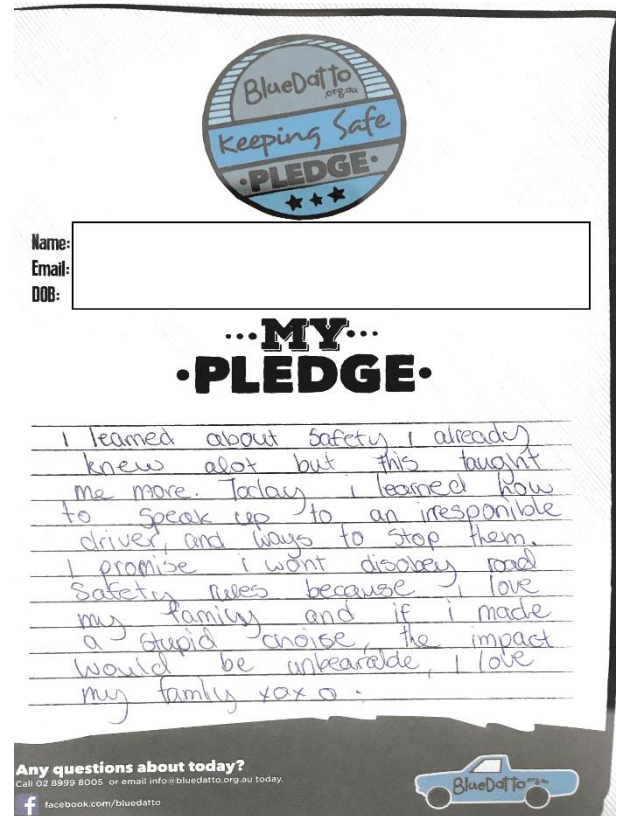 BlueDatto
.org.au
Keeping Safe
•PLEDGE•
Name:
Email:
DOB:
...MY...
•PLEDGE•
I learned about safety I already
knew alot but this taught
me more. Today I learned how
to speak up to an iresponible
driver, and ways to stop them.
I promise i wont disobey road
safety rules because I love
my family and if i made
a stupid choise, the impact
would be unbearalde, I love
my family xoxo.
Any questions about today?
Call 02 8999 8005 or email info@bluedatto.org.au today.
f facebook.com/bluedatto
BlueDatto.org.au